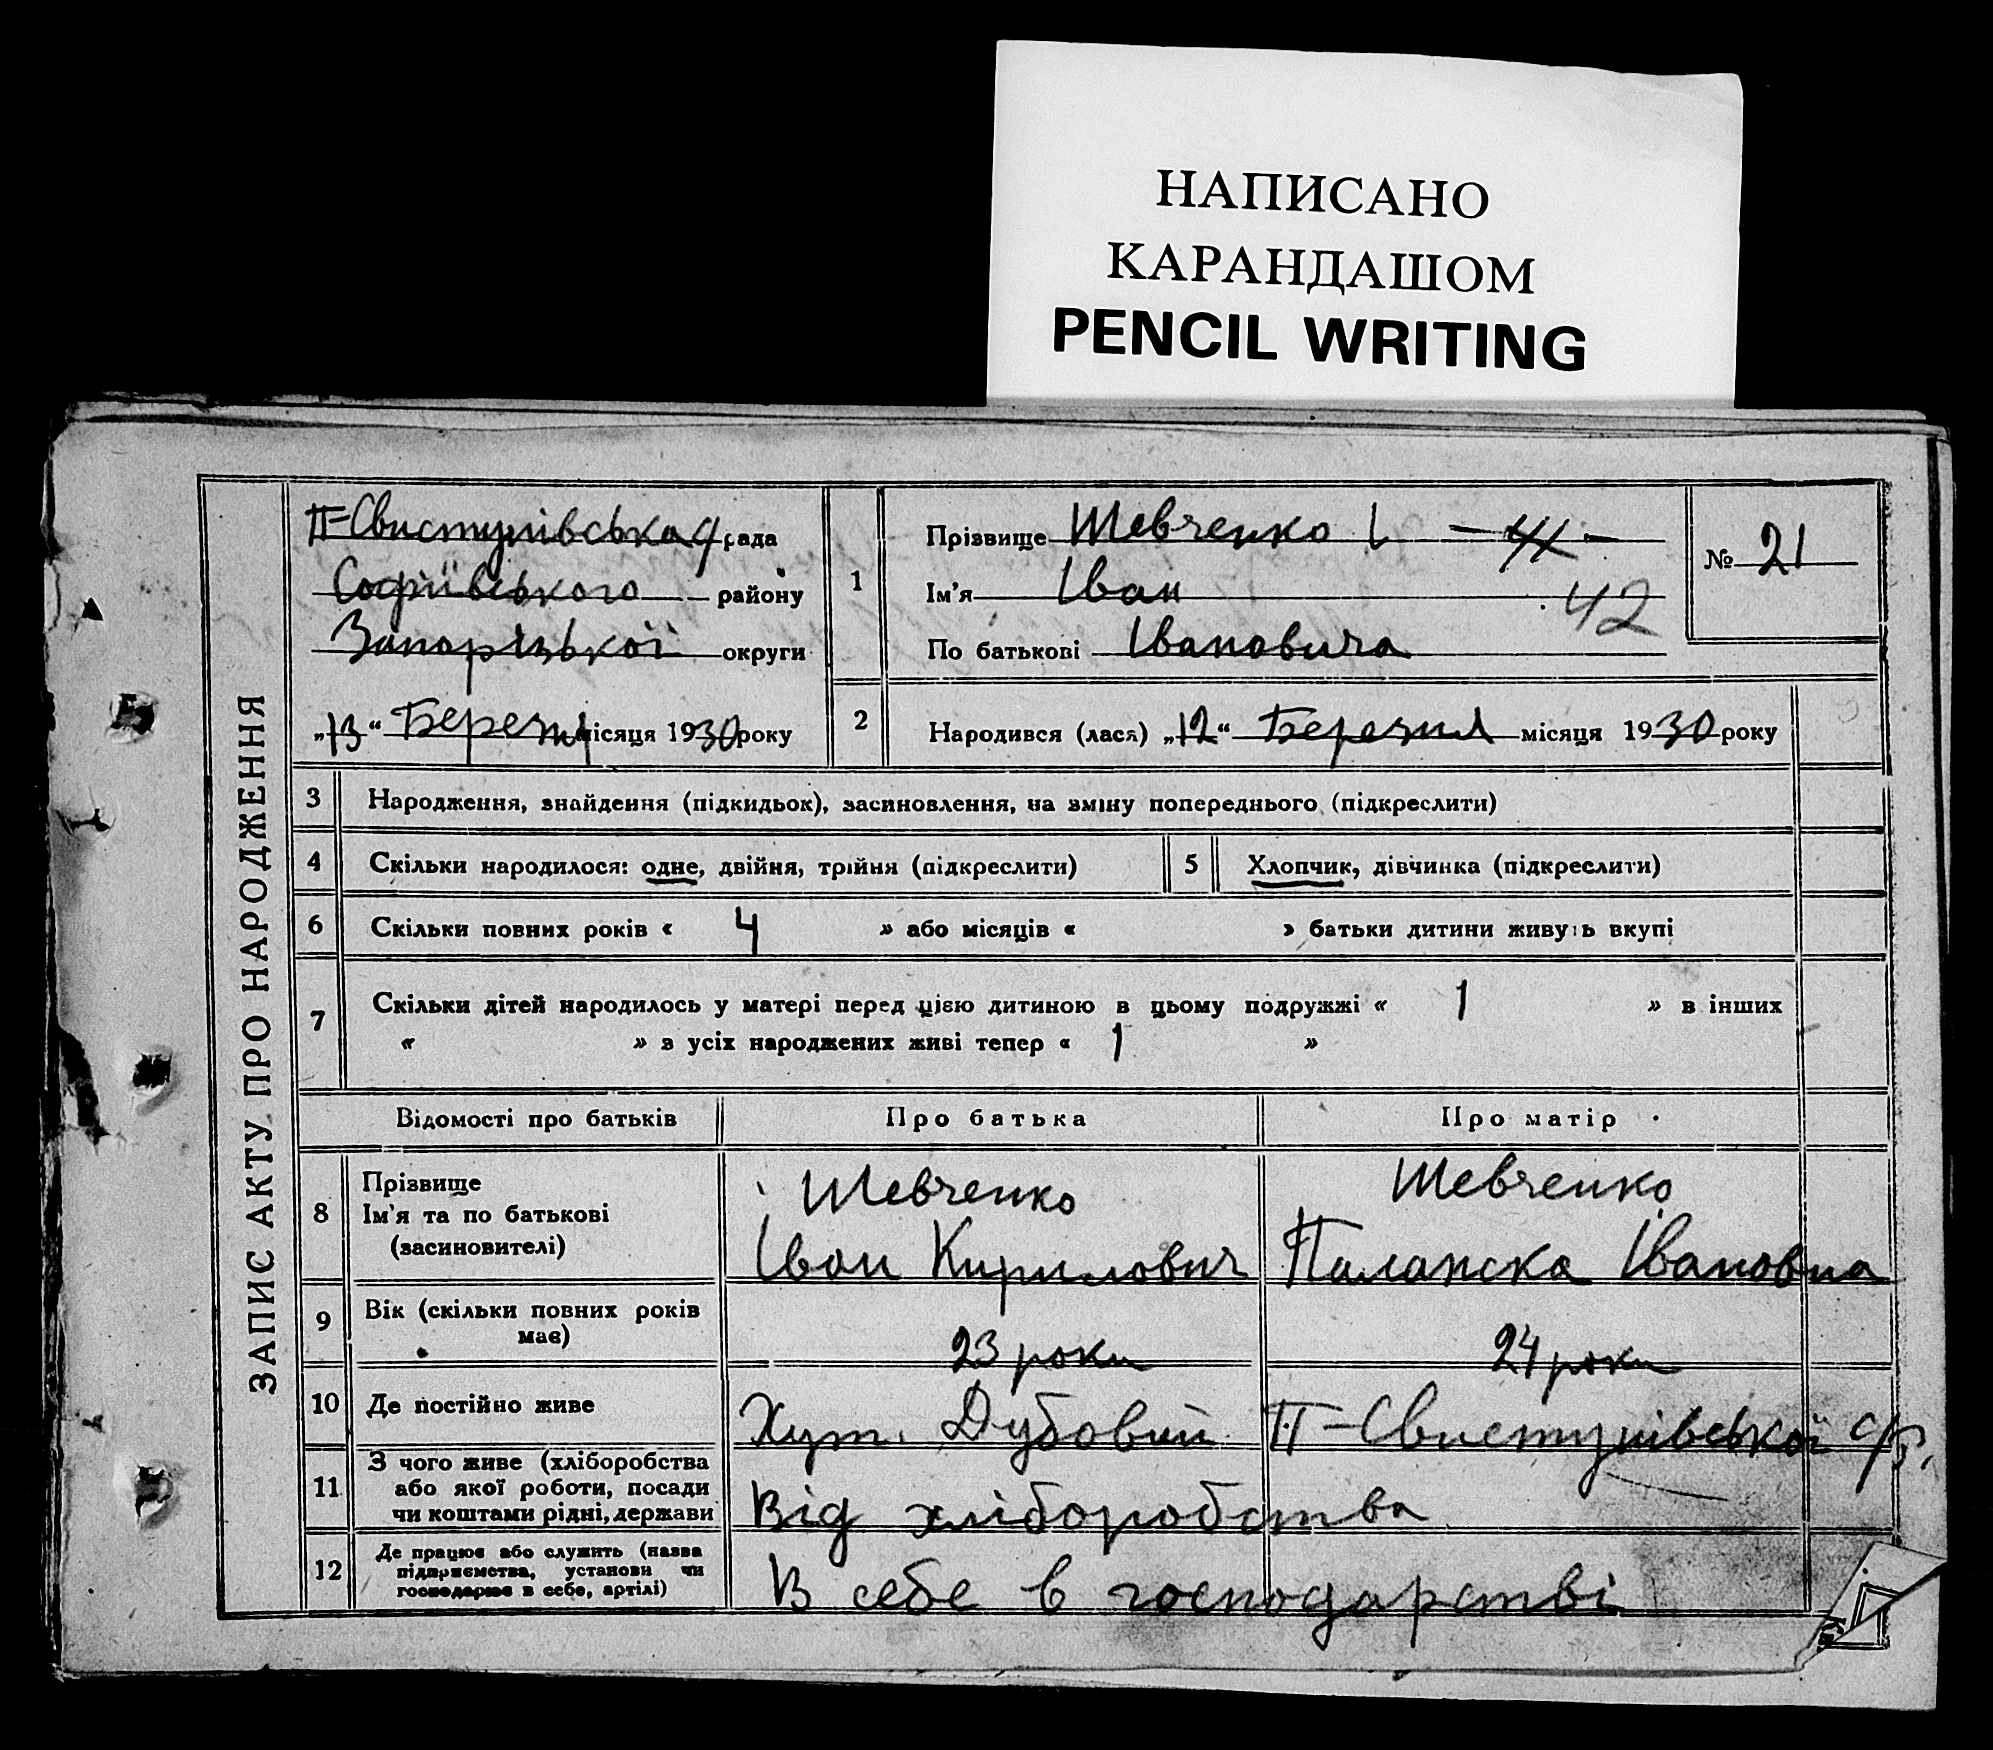 НАПИСАНО
КАРАНДАШОМ
PENCIL WRITING
ЗАПИС АКТУ ПРО НАРОДЖЕННЯ
ІІ-Свистунівська с/рада
Софіївського району
Запорізької округи
„13“ Березня місяця 1930 року
1
Прізвище Шевченко
Ім'я Іван
42
По батькові Івановича
№ 21
2 Народився (лася) „12“ Березня місяця 1930 року
3 Народження, знайдення (підкидьок), засиновлення, на зміну попереднього (підкреслити)
4 Скільки народилося: одне, двійня, трійня (підкреслити) 5 Хлопчик, дівчинка (підкреслити)
6 Скільки повних років « 4 » або місяців « » батьки дитини живуть вкупі
7 Скільки дітей народилось у матері перед цією дитиною в цьому подружжі « 1 » в інших
« » з усіх народжених живі тепер « 1 »
Відомості про батьків Про батька Про матір
8
Прізвище Шевченко Шевченко
Ім'я та по батькові
(засиновителі) Іван Кирилович Палажска Івановна
9 Вік (скільки повних років
має) 23 роки 24 роки
10 Де постійно живе Хут. Дубовий ІІ-Свистунівської с/р.
11 З чого живе (хліборобства
або якої роботи, посади
чи коштами рідні, держави Від хліборобства
12 Де працює або служить (назва
підприємства, установи чи
господарює в себе, артілі) В себе в господарстві